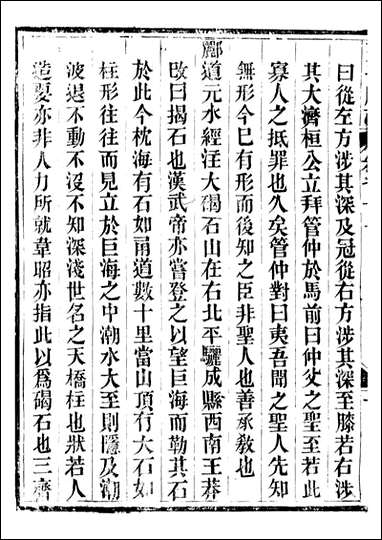 曰從左方涉其深及冠從右方涉其深至膝若右涉
其大濟桓公立拜管仲於馬前曰仲父之聖至若此
寡人之抵罪也久矣管仲對曰夷吾聞之聖人先知
無形今已有形而後知之臣非聖人也善承敎也
酈道元水經注大碣石山在右北平驪成縣西南王莽
改曰揭石也漢武帝亦嘗登之以望巨海而勒其石
於此今枕海有石如甬道數十里當山頂有大石如
柱形往往而見立於巨海之中潮水大至則隱及潮
波退不動不沒不知深淺世名之天橋柱也狀若人
造要亦非人力所就韋昭亦指此以爲碣石也三齊